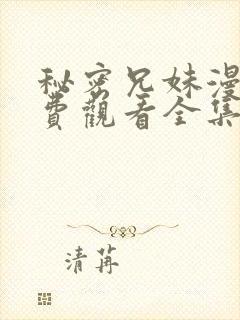 秘密兄妹漫
費觀看全集
清苒